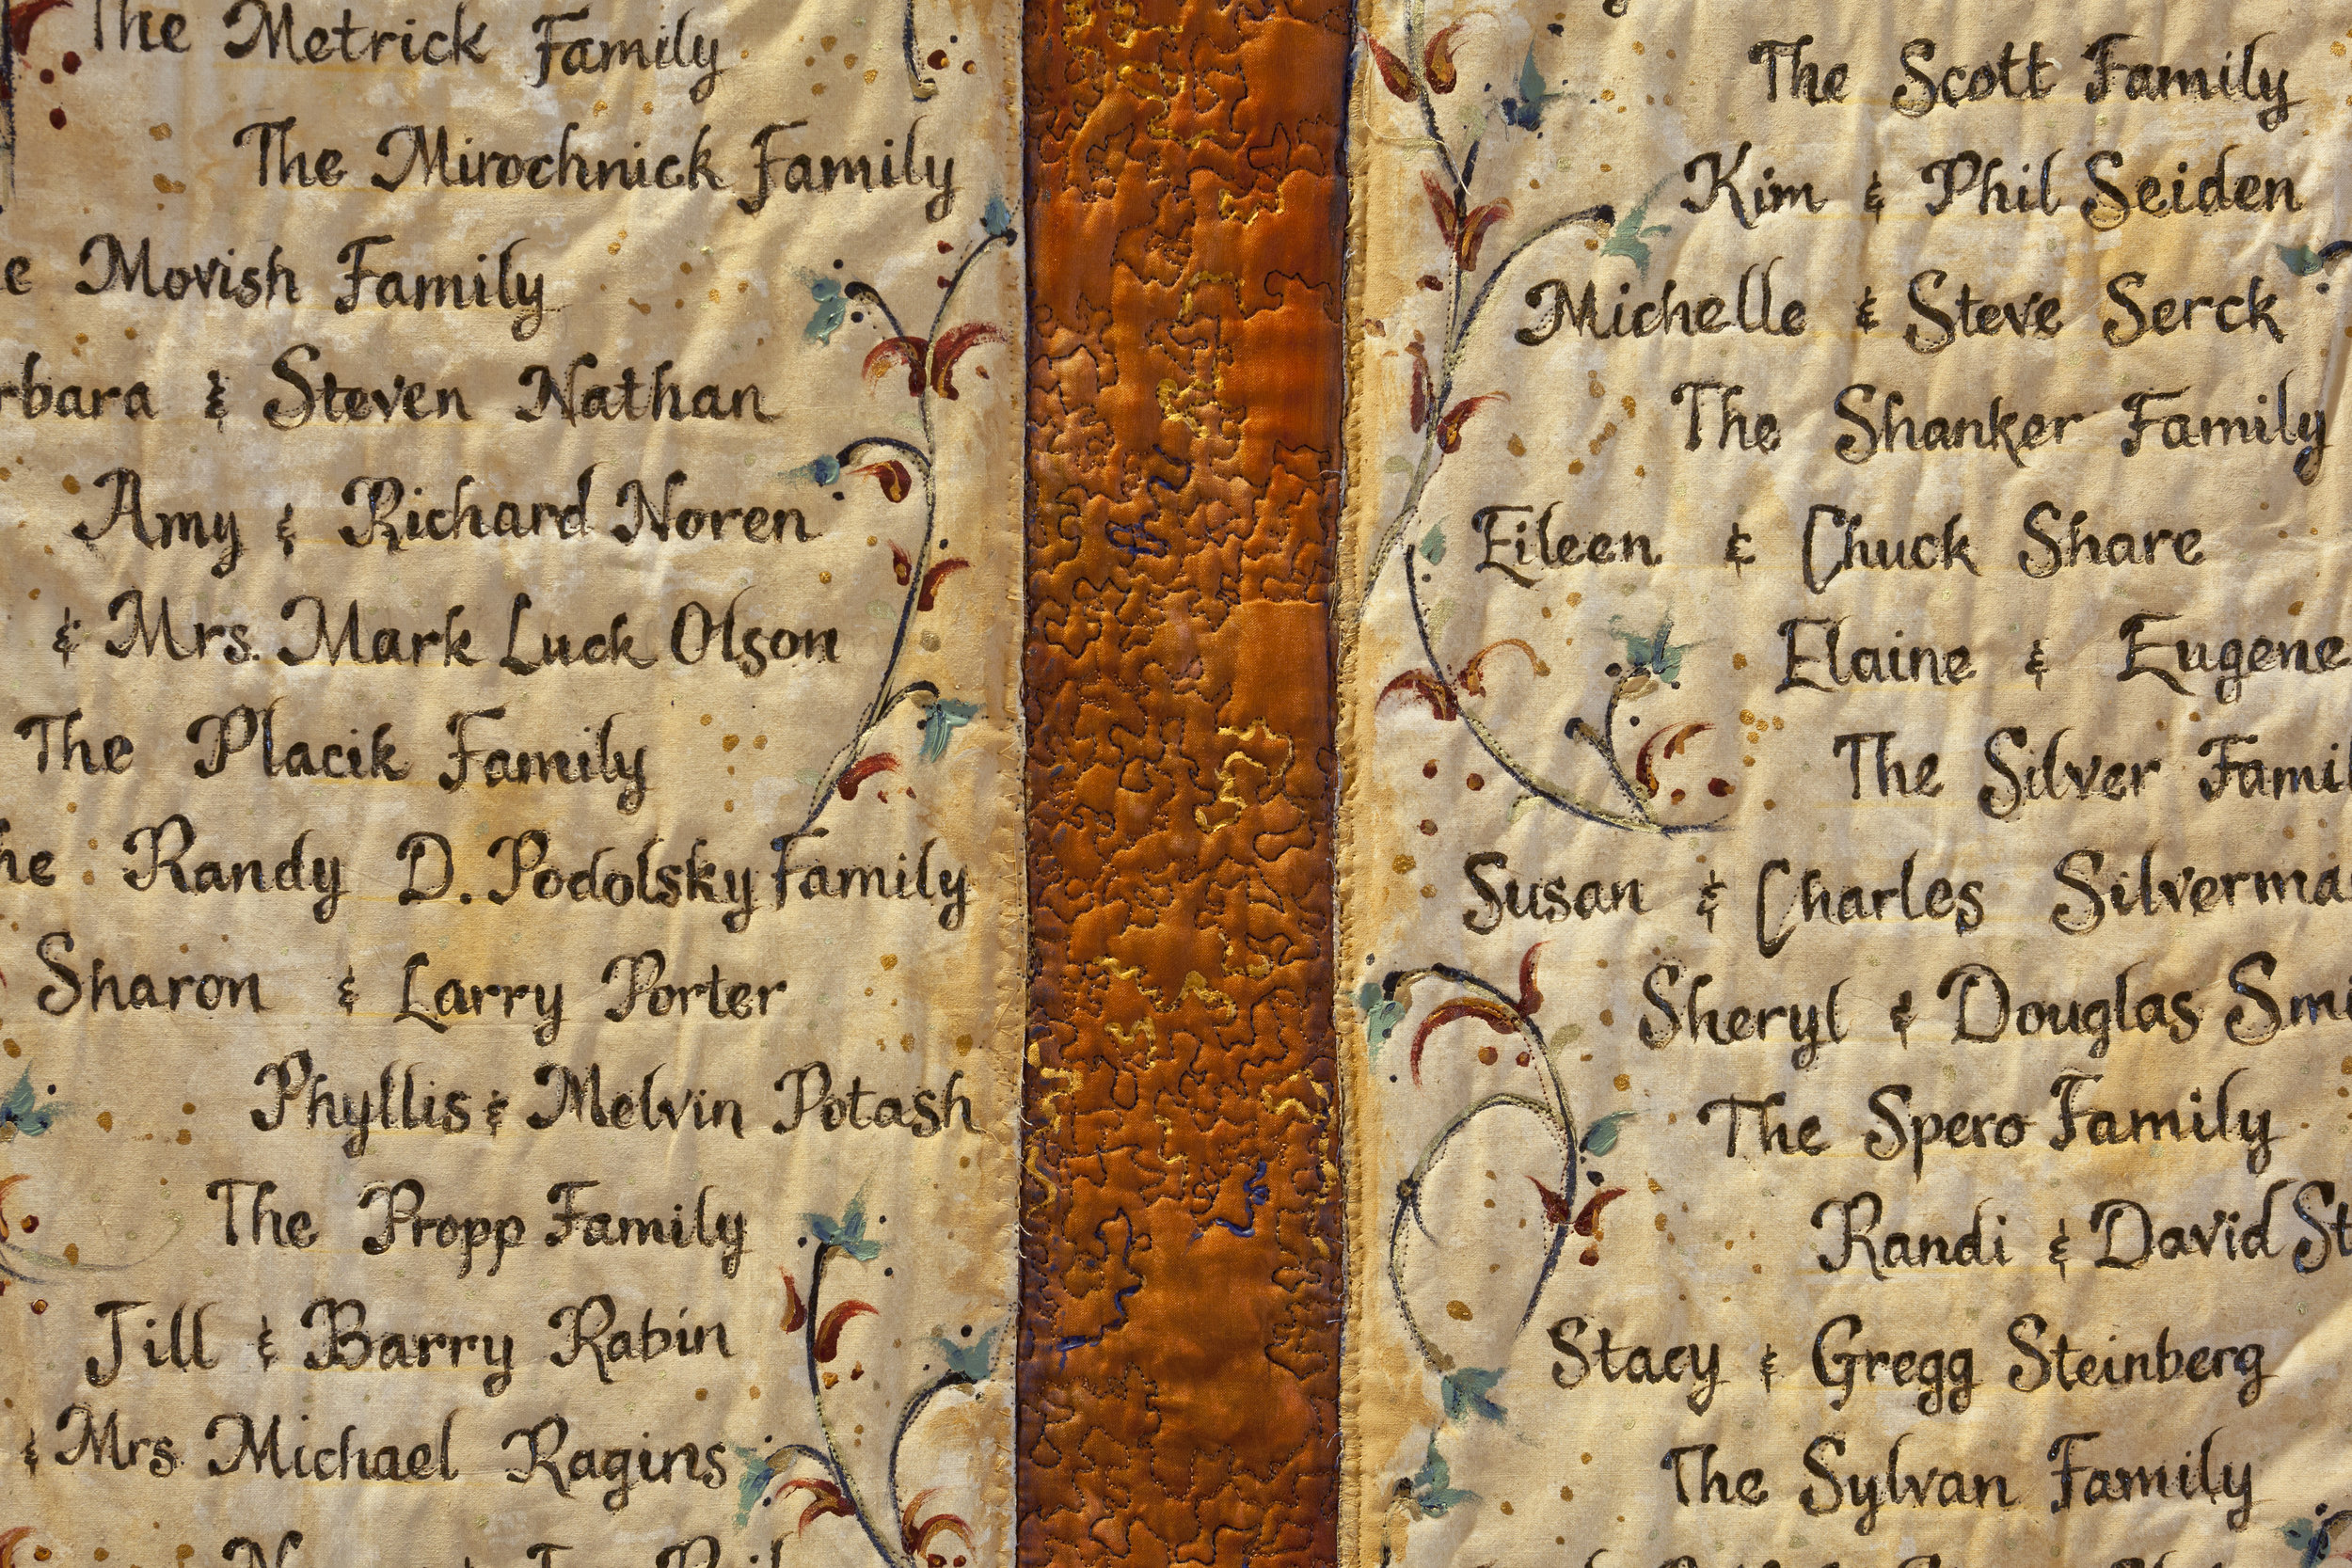 The Metrick Family
The Mirochnick Family
e Movish Family
rbara & Steven Nathan
Amy & Richard Noren
& Mrs. Mark Luck Olson
The Placik Family
he Randy D. Podolsky Family
Sharon & Larry Porter
Phyllis & Melvin Potash
The Propp Family
Jill & Barry Rabin
& Mrs Michael Ragins
The Scott Family
Kim & Phil Seiden
Michelle & Steve Serck
The Shanker Family
Eileen & Chuck Share
Elaine & Eugene
The Silver Famil
Susan & Charles Silverma
Sheryl & Douglas Smi
The Spero Family
Randi & David St
Stacy & Gregg Steinberg
The Sylvan Family